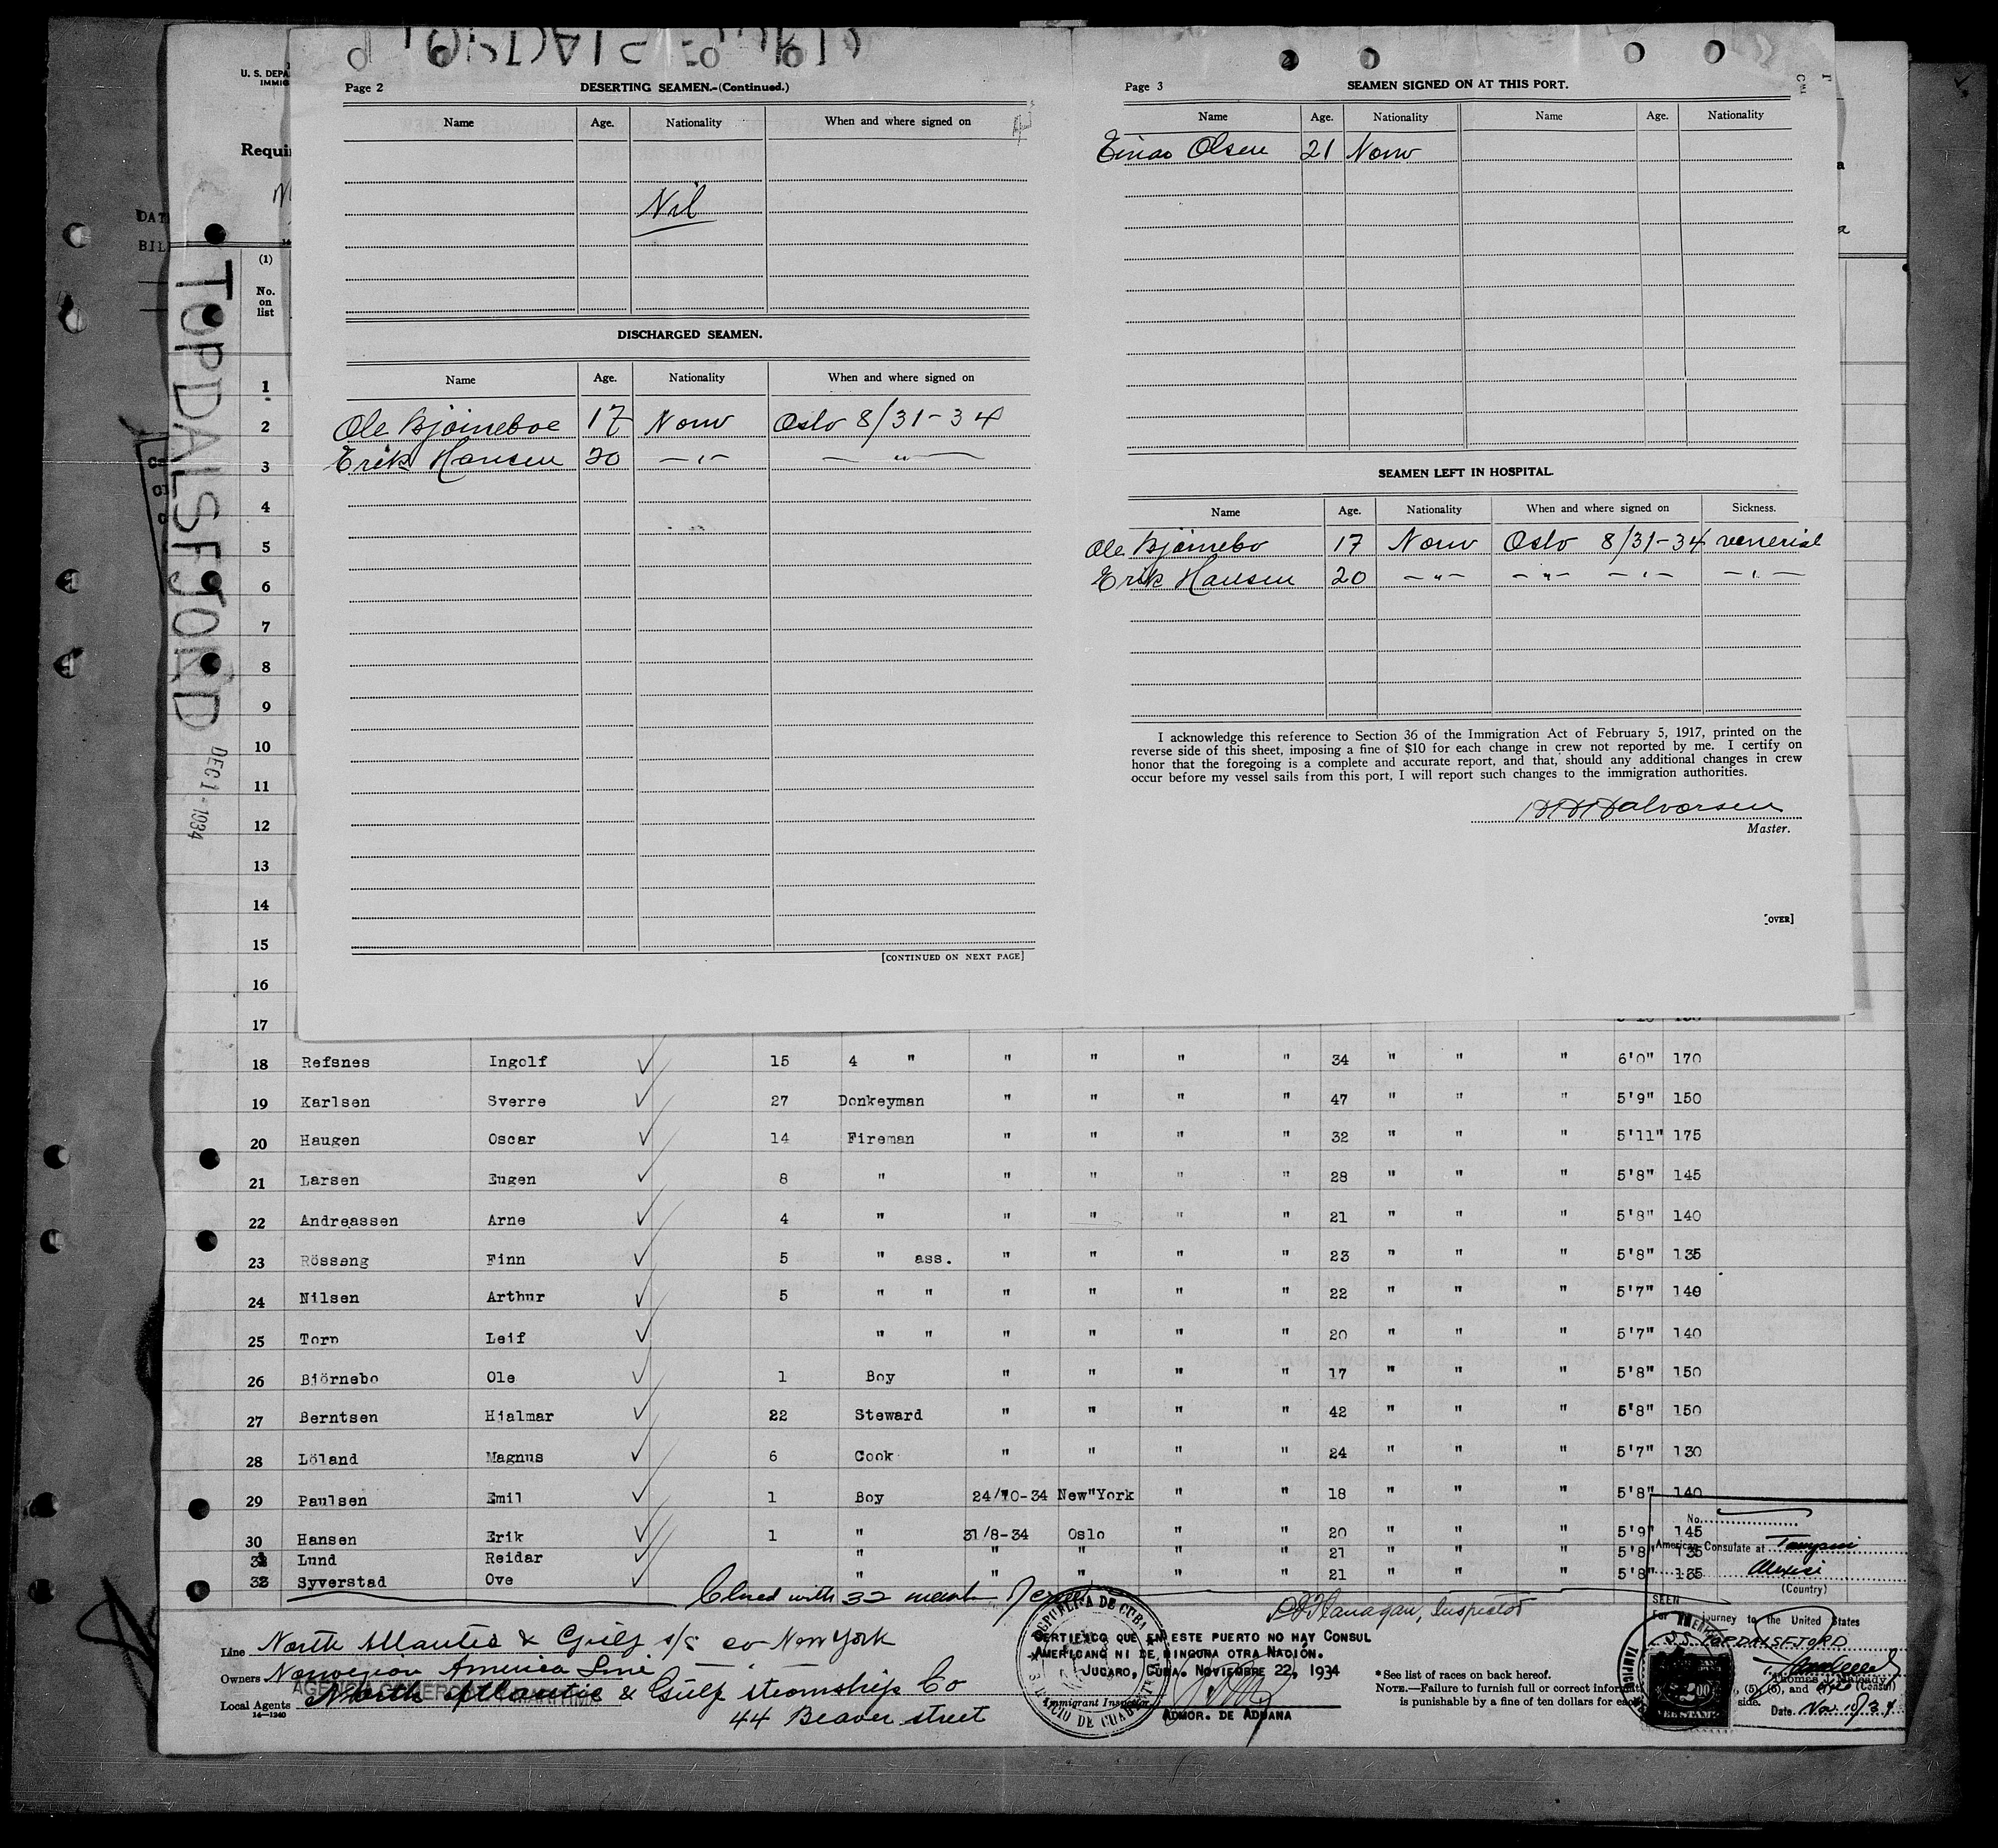 TOPDALSFJORD
DEC 1 - 1934
U. S. DEPA
IMMIG
Requi
DAT
BIL
(1)
No.
on
list
1
2
3
4
5
6
7
8
9
10
11
12
13
14
15
16
17
Page 2 DESERTING SEAMEN.-(Continued.)
Name Age. Nationality When and where signed on
Nil
DISCHARGED SEAMEN.
Name Age. Nationality When and where signed on
Ole Bjorneboe 17 Norw Oslo 8/31-34
Erik Hansen 20 -"- - " -
[CONTINUED ON NEXT PAGE]
Page 3 SEAMEN SIGNED ON AT THIS PORT.
Name Age. Nationality Name Age. Nationality
Einar Olsen 21 Norw
SEAMEN LEFT IN HOSPITAL.
Name Age. Nationality When and where signed on Sickness.
Ole Bjornebo 17 Norw Oslo 8/31-34 venerial
Erik Hansen 20 -"- -"- -"- -"-
I acknowledge this reference to Section 36 of the Immigration Act of February 5, 1917, printed on the
reverse side of this sheet, imposing a fine of $10 for each change in crew not reported by me. I certify on
honor that the foregoing is a complete and accurate report, and that, should any additional changes in crew
occur before my vessel sails from this port, I will report such changes to the immigration authorities.
Halvorsen
Master.
[OVER]
18 Refsnes Ingolf 15 4 " " " " " 34 " " " 6'0" 170
19 Karlsen Sverre 27 Donkeyman " " " " 47 " " " 5'9" 150
20 Haugen Oscar 14 Fireman " " " " 32 " " " 5'11" 175
21 Larsen Eugen 8 " " " " " 28 " " " 5'8" 145
22 Andreassen Arne 4 " " " " " 21 " " " 5'8" 140
23 Rösseng Finn 5 " ass. " " " " 23 " " " 5'8" 135
24 Nilsen Arthur 5 " " " " " " 22 " " " 5'7" 140
25 Torp Leif " " " " " " 20 " " " 5'7" 140
26 Björnebo Ole 1 Boy " " " " 17 " " " 5'8" 150
27 Berntsen Hjalmar 22 Steward " " " " 42 " " " 5'8" 150
28 Löland Magnus 6 Cook " " " " 24 " " " 5'7" 130
29 Paulsen Emil 1 Boy 24/10-34 New York " " 18 " " " 5'8" 140
30 Hansen Erik 1 " 31/8-34 Oslo " " 20 " " " 5'9" 145
31 Lund Reidar " " " " " 21 " " " 5'8" 135
32 Syverstad Ove " " " " " 21 " " " 5'8" 135
Closed with 32 memb of crew
Flanagan, Inspector
Line North Atlantic & Gulf s/s co New York
Owners Norwegian America Line
Local Agents North Atlantic & Gulf steamship Co
44 Beaver street
14-1240
REPUBLICA DE CUBA
Immigrant Inspector
CERTIFICO QUE EN ESTE PUERTO NO HAY CONSUL
AMERICANO NI DE NINGUNA OTRA NACIÓN.
JUCARO, CUBA. NOVIEMBRE 22, 1934
ADMOR. DE ADUANA
*See list of races on back hereof.
NOTE.—Failure to furnish full or correct informat
is punishable by a fine of ten dollars for ea
(5), (6), and (7)
side.
No.
American Consulate at Tampico
Mexico
(Country)
SEEN
For journey to the United States
TOPDALSFJORD
(Consul)
Date Nov 10/34